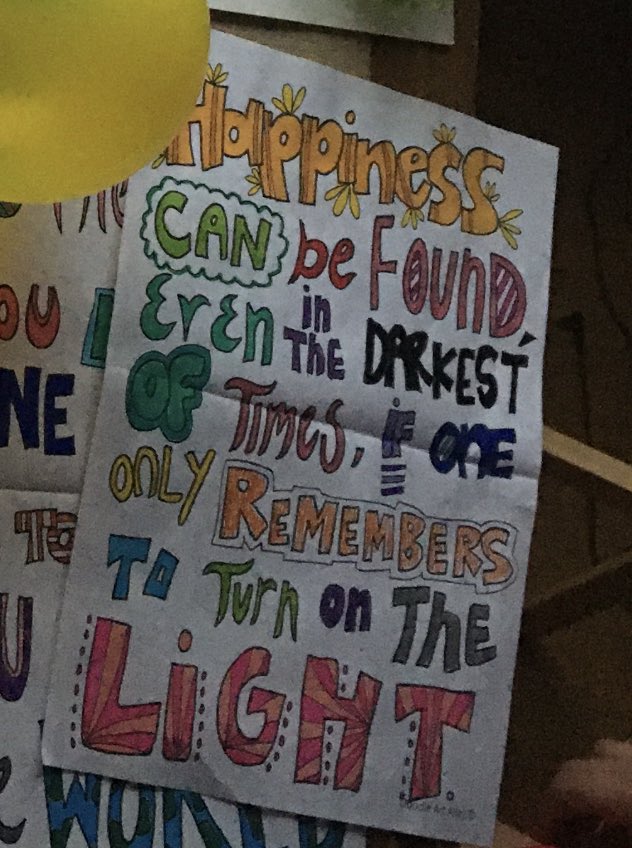 Happiness
CAN be FOUND,
EVEN in THE DARKEST
OF TIMES, iF ONE
ONLY REMEMBERS
TO Turn on THE
LiGHT.
OU
NE
TO
U
WORLD